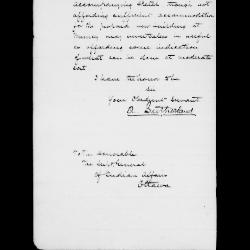 accompanying sketch though not
affording sufficient accommodation
for the proposed new building at
may nevertheless be useful
as affording some indication
of what can be done at moderate
cost
I have the honor to be
Sir
Your Obedient Servant
D. Sutherland
To the Honorable
The Supt General
of Indian Affairs
Ottawa